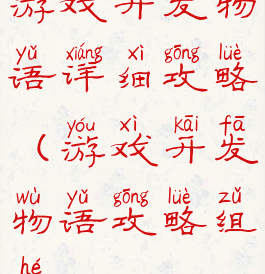 游戏开发物
yǔ xiáng xì gōng lüè
语详细攻略
yóu xì kāi fā
（游戏开发
wù yǔ gōng lüè zǔ
物语攻略组
hé